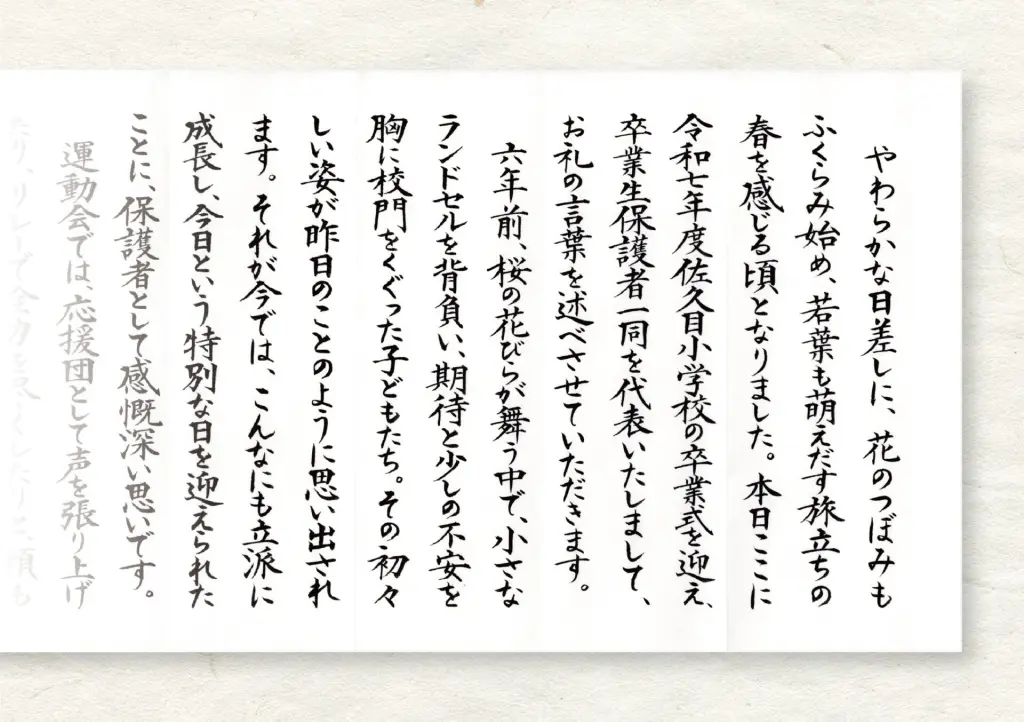 やわらかな日差しに、花のつぼみも
ふくらみ始め、若葉も萌えだす旅立ちの
春を感じる頃となりました。本日ここに
令和七年度佐久目小学校の卒業式を迎え、
卒業生保護者一同を代表いたしまして、
お礼の言葉を述べさせていただきます。
六年前、桜の花びらが舞う中で、小さな
ランドセルを背負い、期待と少しの不安を
胸に校門をくぐった子どもたち。その初々
しい姿が昨日のことのように思い出され
ます。それが今では、こんなにも立派に
成長し、今日という特別な日を迎えられた
ことに、保護者として感慨深い思いです。
運動会では、応援団として声を張り上げ
たり、リレーで全力を尽くしたりと、頂も